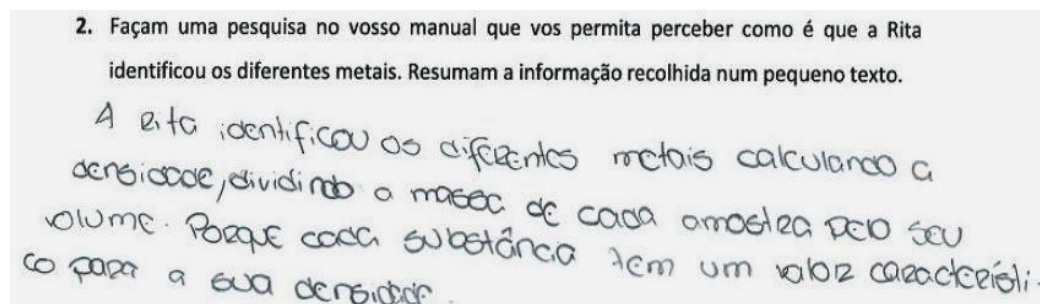 2. Façam uma pesquisa no vosso manual que vos permita perceber como é que a Rita
identificou os diferentes metais. Resumam a informação recolhida num pequeno texto.
A Rita identificou os diferentes metais calculando a
densidade, dividindo a massa de cada amostra pelo seu
volume. Porque cada substância tem um valor característi-
co para a sua densidade.